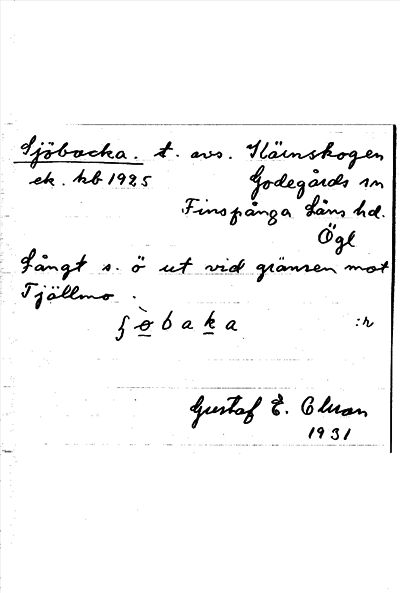 Sjöbacka. t. avs. Stäinskogen
ek. kb 1925 Godegårds sn
Finspånga läns hd.
Ögl
Långt s. ö ut vid gränsen mot
Tjällmo.
ʃòbaka :n
Gustaf E. Olsson
1931